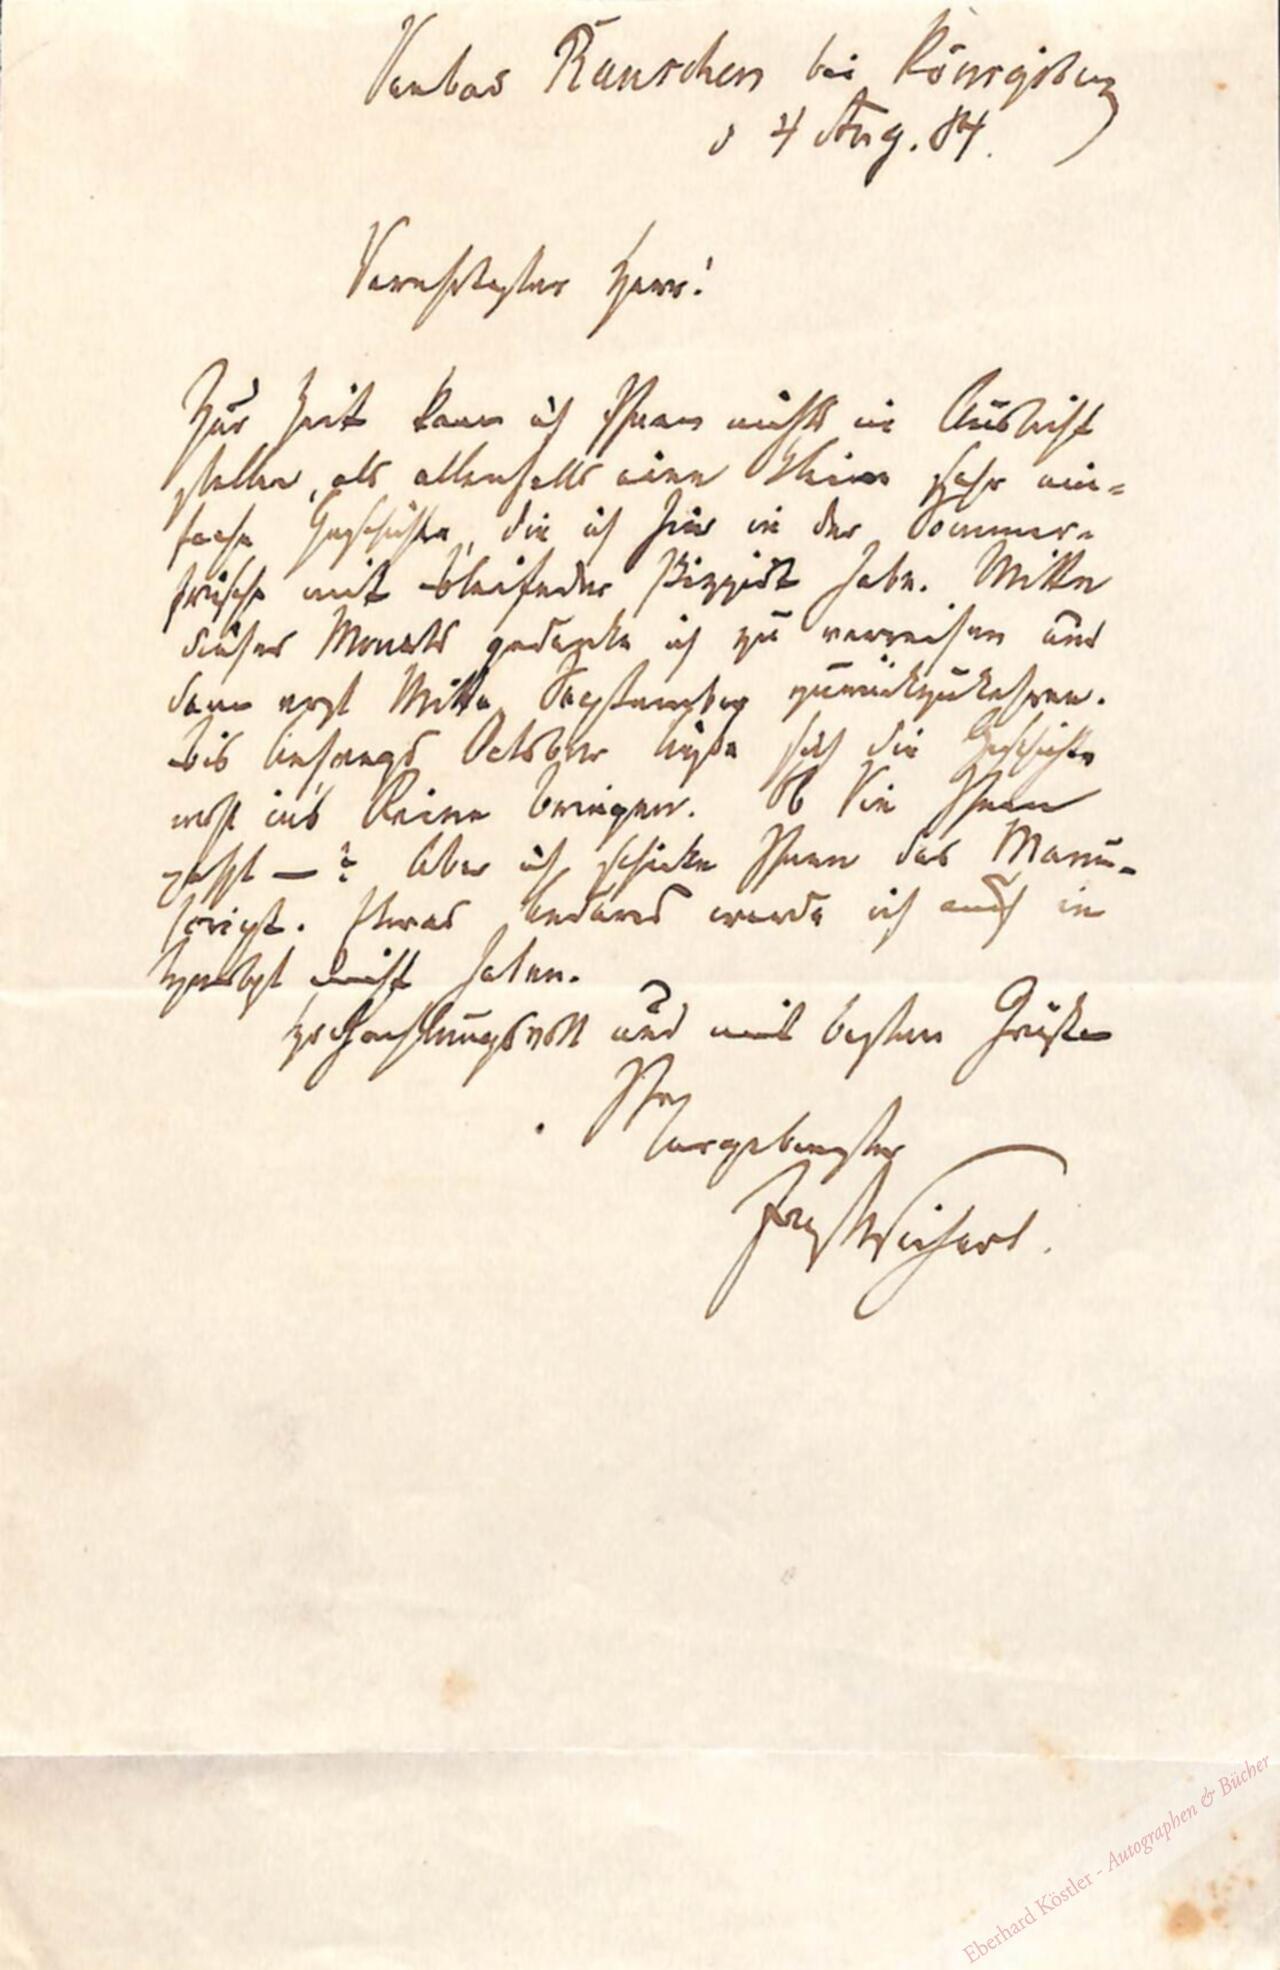 Seebad Rauschen bei Königsberg
d 4 Aug. 84.
Verehrtester Herr!
Zur Zeit kann ich Ihnen nichts in Aussicht
stellen, als allenfalls eine kleine sehr ein=
fache Geschichte, die ich hier in der Sommer-
frische mit Bleifeder skizzirt habe. Mitte
dieses Monats gedenke ich zu verreisen und
dann erst Mitte September zurückzukehren.
Bis Anfangs October ließe sich die Geschichte
wohl in's Reine bringen. Ob Sie Ihnen
paßt —? Aber ich schicke Ihnen das Manu-
script. Etwas Anderes werde ich auch im
Herbst nicht haben.
Hochachtungsvoll und mit besten Grüßen
Ihr
ergebenster
Ernst Wichert.
Eberhard Köstler - Autographen & Bücher